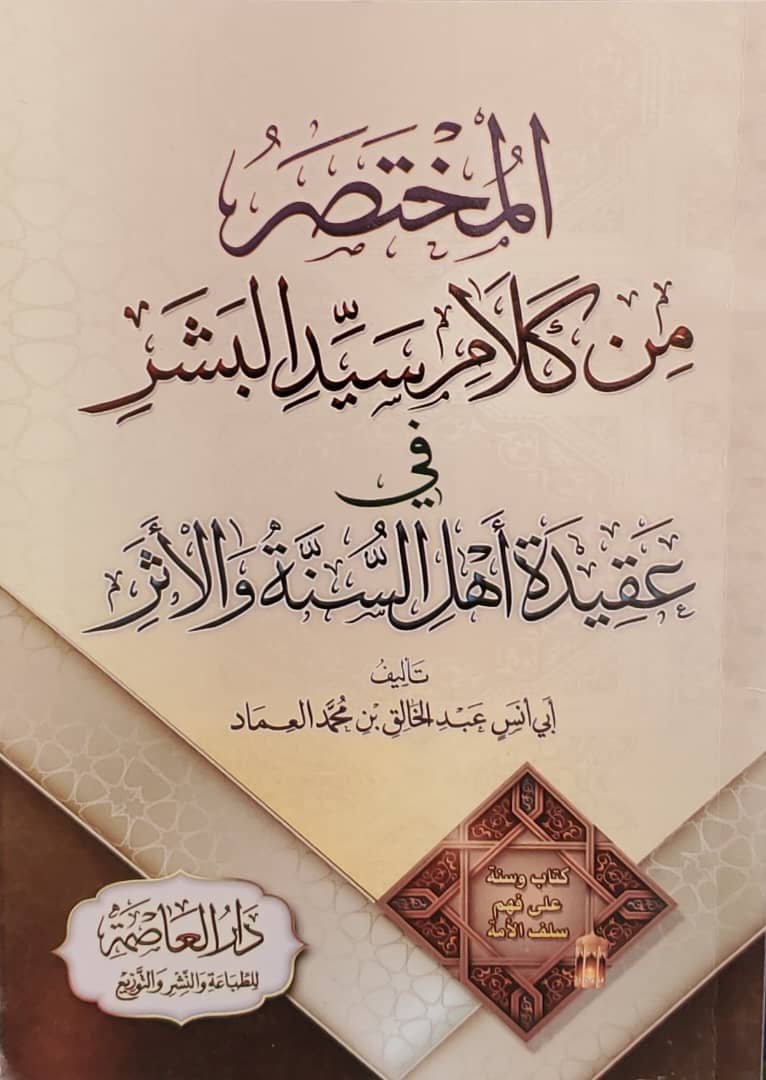 المُخْتَصَرُ
مِن كَلَامِ سَيِّدِ البَشَرِ
فِي
عَقِيدَة أَهْلِ السُّنَّةِ وَالأَثَرِ
تَأليفُ
أبي أنسٍ عَبدِ الخَالِقِ بْنِ مُحمَّد العِمَاد
كتاب وسنة
على فهم
سلف الأمة
دَارُ العَاصِمَة
لِلطّبَاعَةِ وَالنَّشْرِ وَالتَّوْزِيْعِ